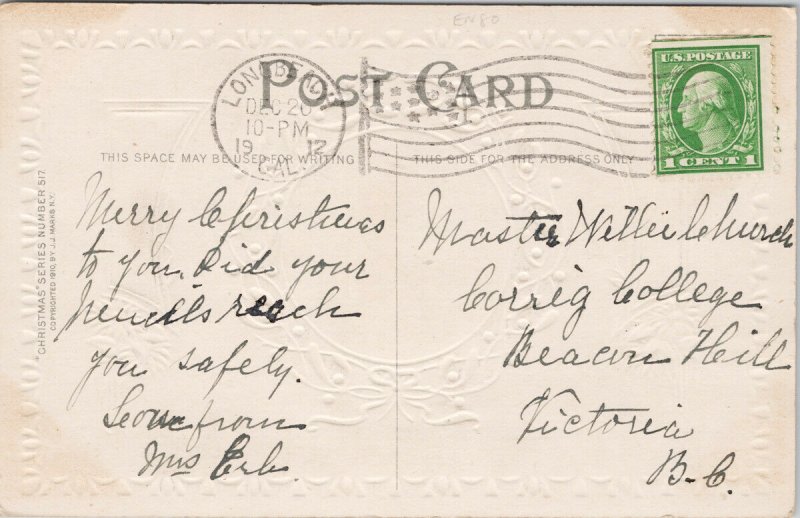 EN80
POST CARD
LONG BEACH
DEC 20
10-PM
19 12
CAL.
U.S. POSTAGE
1 CENT 1
THIS SPACE MAY BE USED FOR WRITING
THIS SIDE FOR THE ADDRESS ONLY
"CHRISTMAS" SERIES NUMBER 517.
COPYRIGHTED 1910, BY J.J. MARKS N.Y.
Merry Christmas
to you, Did your
pencils reach
you safely.
from
Mrs Erb.
Master Willie Church
Corrig College
Beacon Hill
Victoria
B.C.